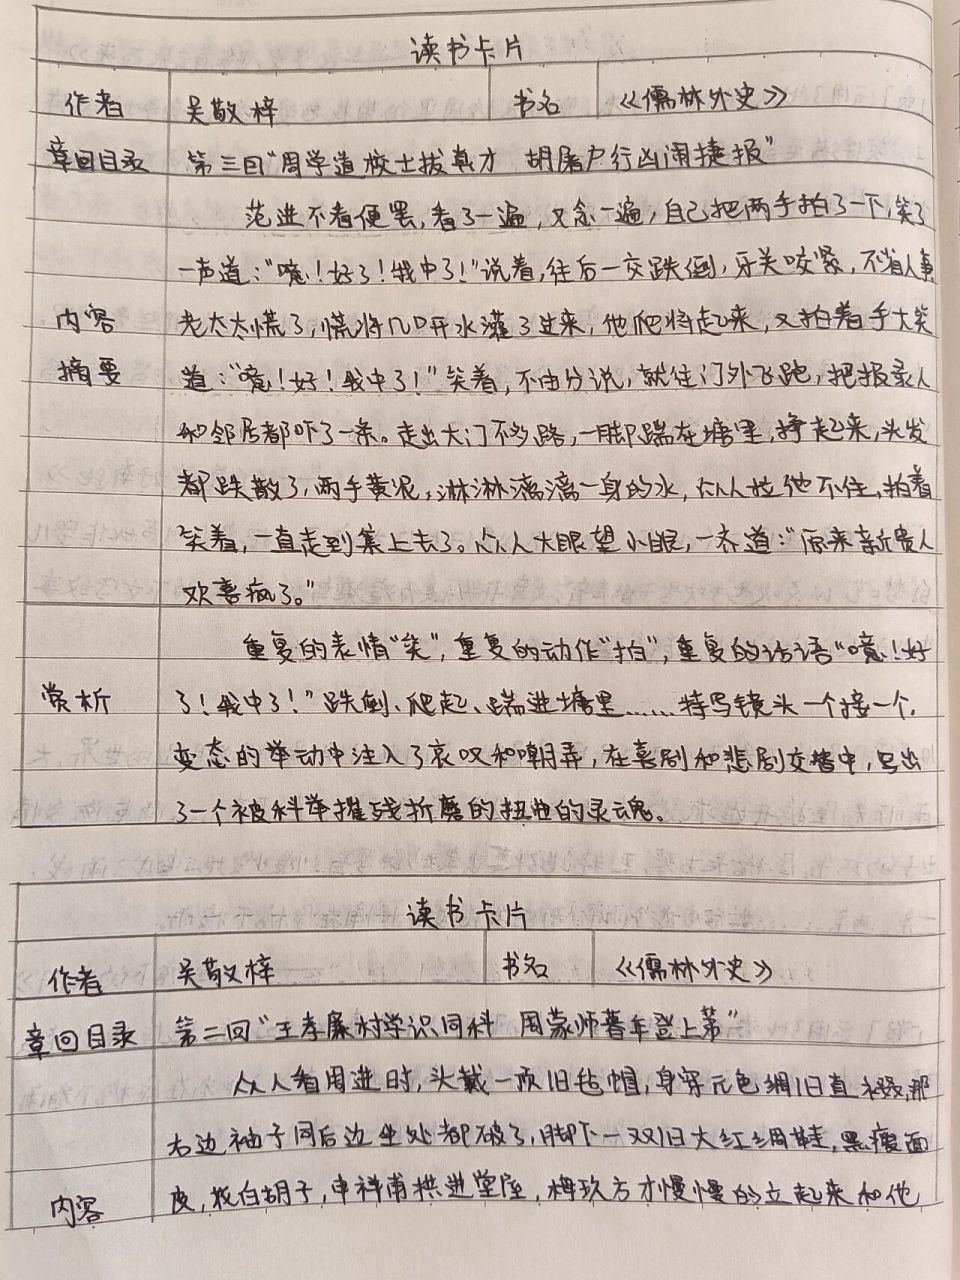 读书卡片
作者 吴敬梓 书名 《儒林外史》
章回目录 第三回"周学道校士拔真才 胡屠户行凶闹捷报"
范进不看便罢,看了一遍,又念一遍,自己把两手拍了一下,笑了
一声道:"噫!好了!我中了!"说着,往后一交跌倒,牙关咬紧,不省人事
内容 老太太慌了,慌将几口开水灌了过来,他爬将起来,又拍着手大笑
摘要 道:"噫!好!我中了!"笑着,不由分说,就往门外飞跑,把报录人
和邻居都吓了一条。走出大门不多路,一脚踹在塘里,挣起来,头发
都跌散了,两手黄泥,淋淋漓漓一身的水,众人拉他不住,拍着
笑着,一直走到集上去了。众人大眼望小眼,一齐道:"原来新贵人
欢喜疯了。"
重复的表情"笑",重复的动作"拍",重复的话语"噫!好
赏析 了!我中了!"跌倒、爬起、踹进塘里……特写镜头一个接一个,
变态的举动中注入了哀叹和嘲弄,在喜剧和悲剧交替中,写出
了一个被科举摧残折磨的扭曲的灵魂。
读书卡片
作者 吴敬梓 书名 《儒林外史》
章回目录 第二回"王孝廉村学识同科 周蒙师暮年登上第"
众人看周进时,头戴一顶旧毡帽,身穿元色绸旧直裰,那
右边袖子同后边坐处都破了,脚下一双旧大红绸鞋,黑瘦面
内容 皮,花白胡子,申祥甫拱进堂屋,梅玖方才慢慢的立起来和他